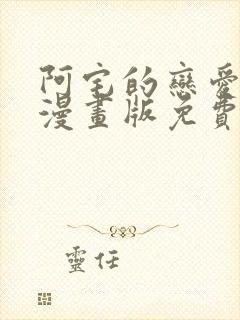 阿宅的戀愛
漫畫版免費
靈任